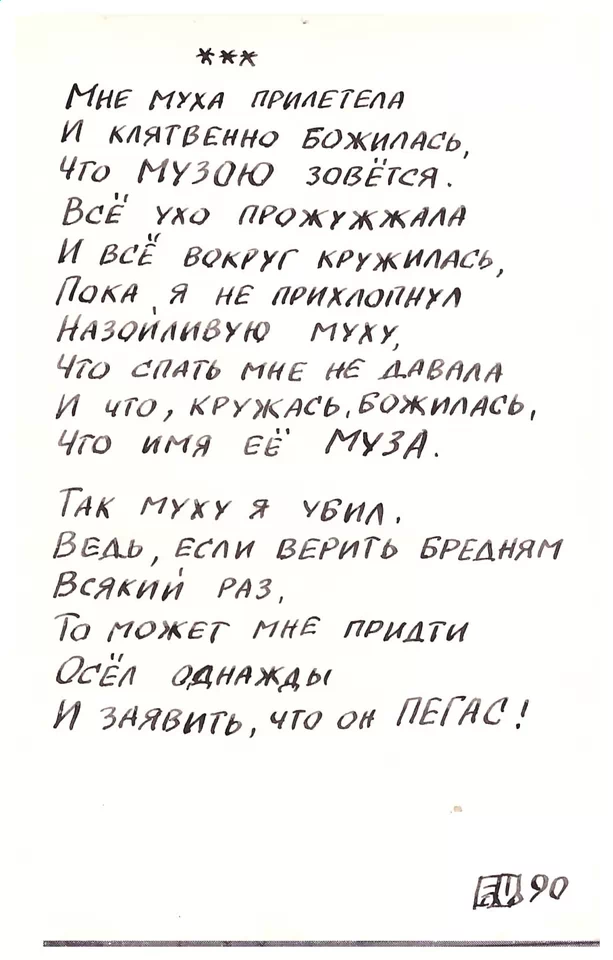 ***
Мне муха прилетела
И клятвенно божилась,
Что МУЗОЮ зовётся.
Всё ухо прожужжала
И всё вокруг кружилась,
Пока я не прихлопнул
Назойливую муху,
Что спать мне не давала
И что, кружась, божилась,
Что имя её МУЗА.
Так муху я убил.
Ведь, если верить бредням
Всякий раз,
То может мне придти
Осёл однажды
И заявить, что он ПЕГАС!
90